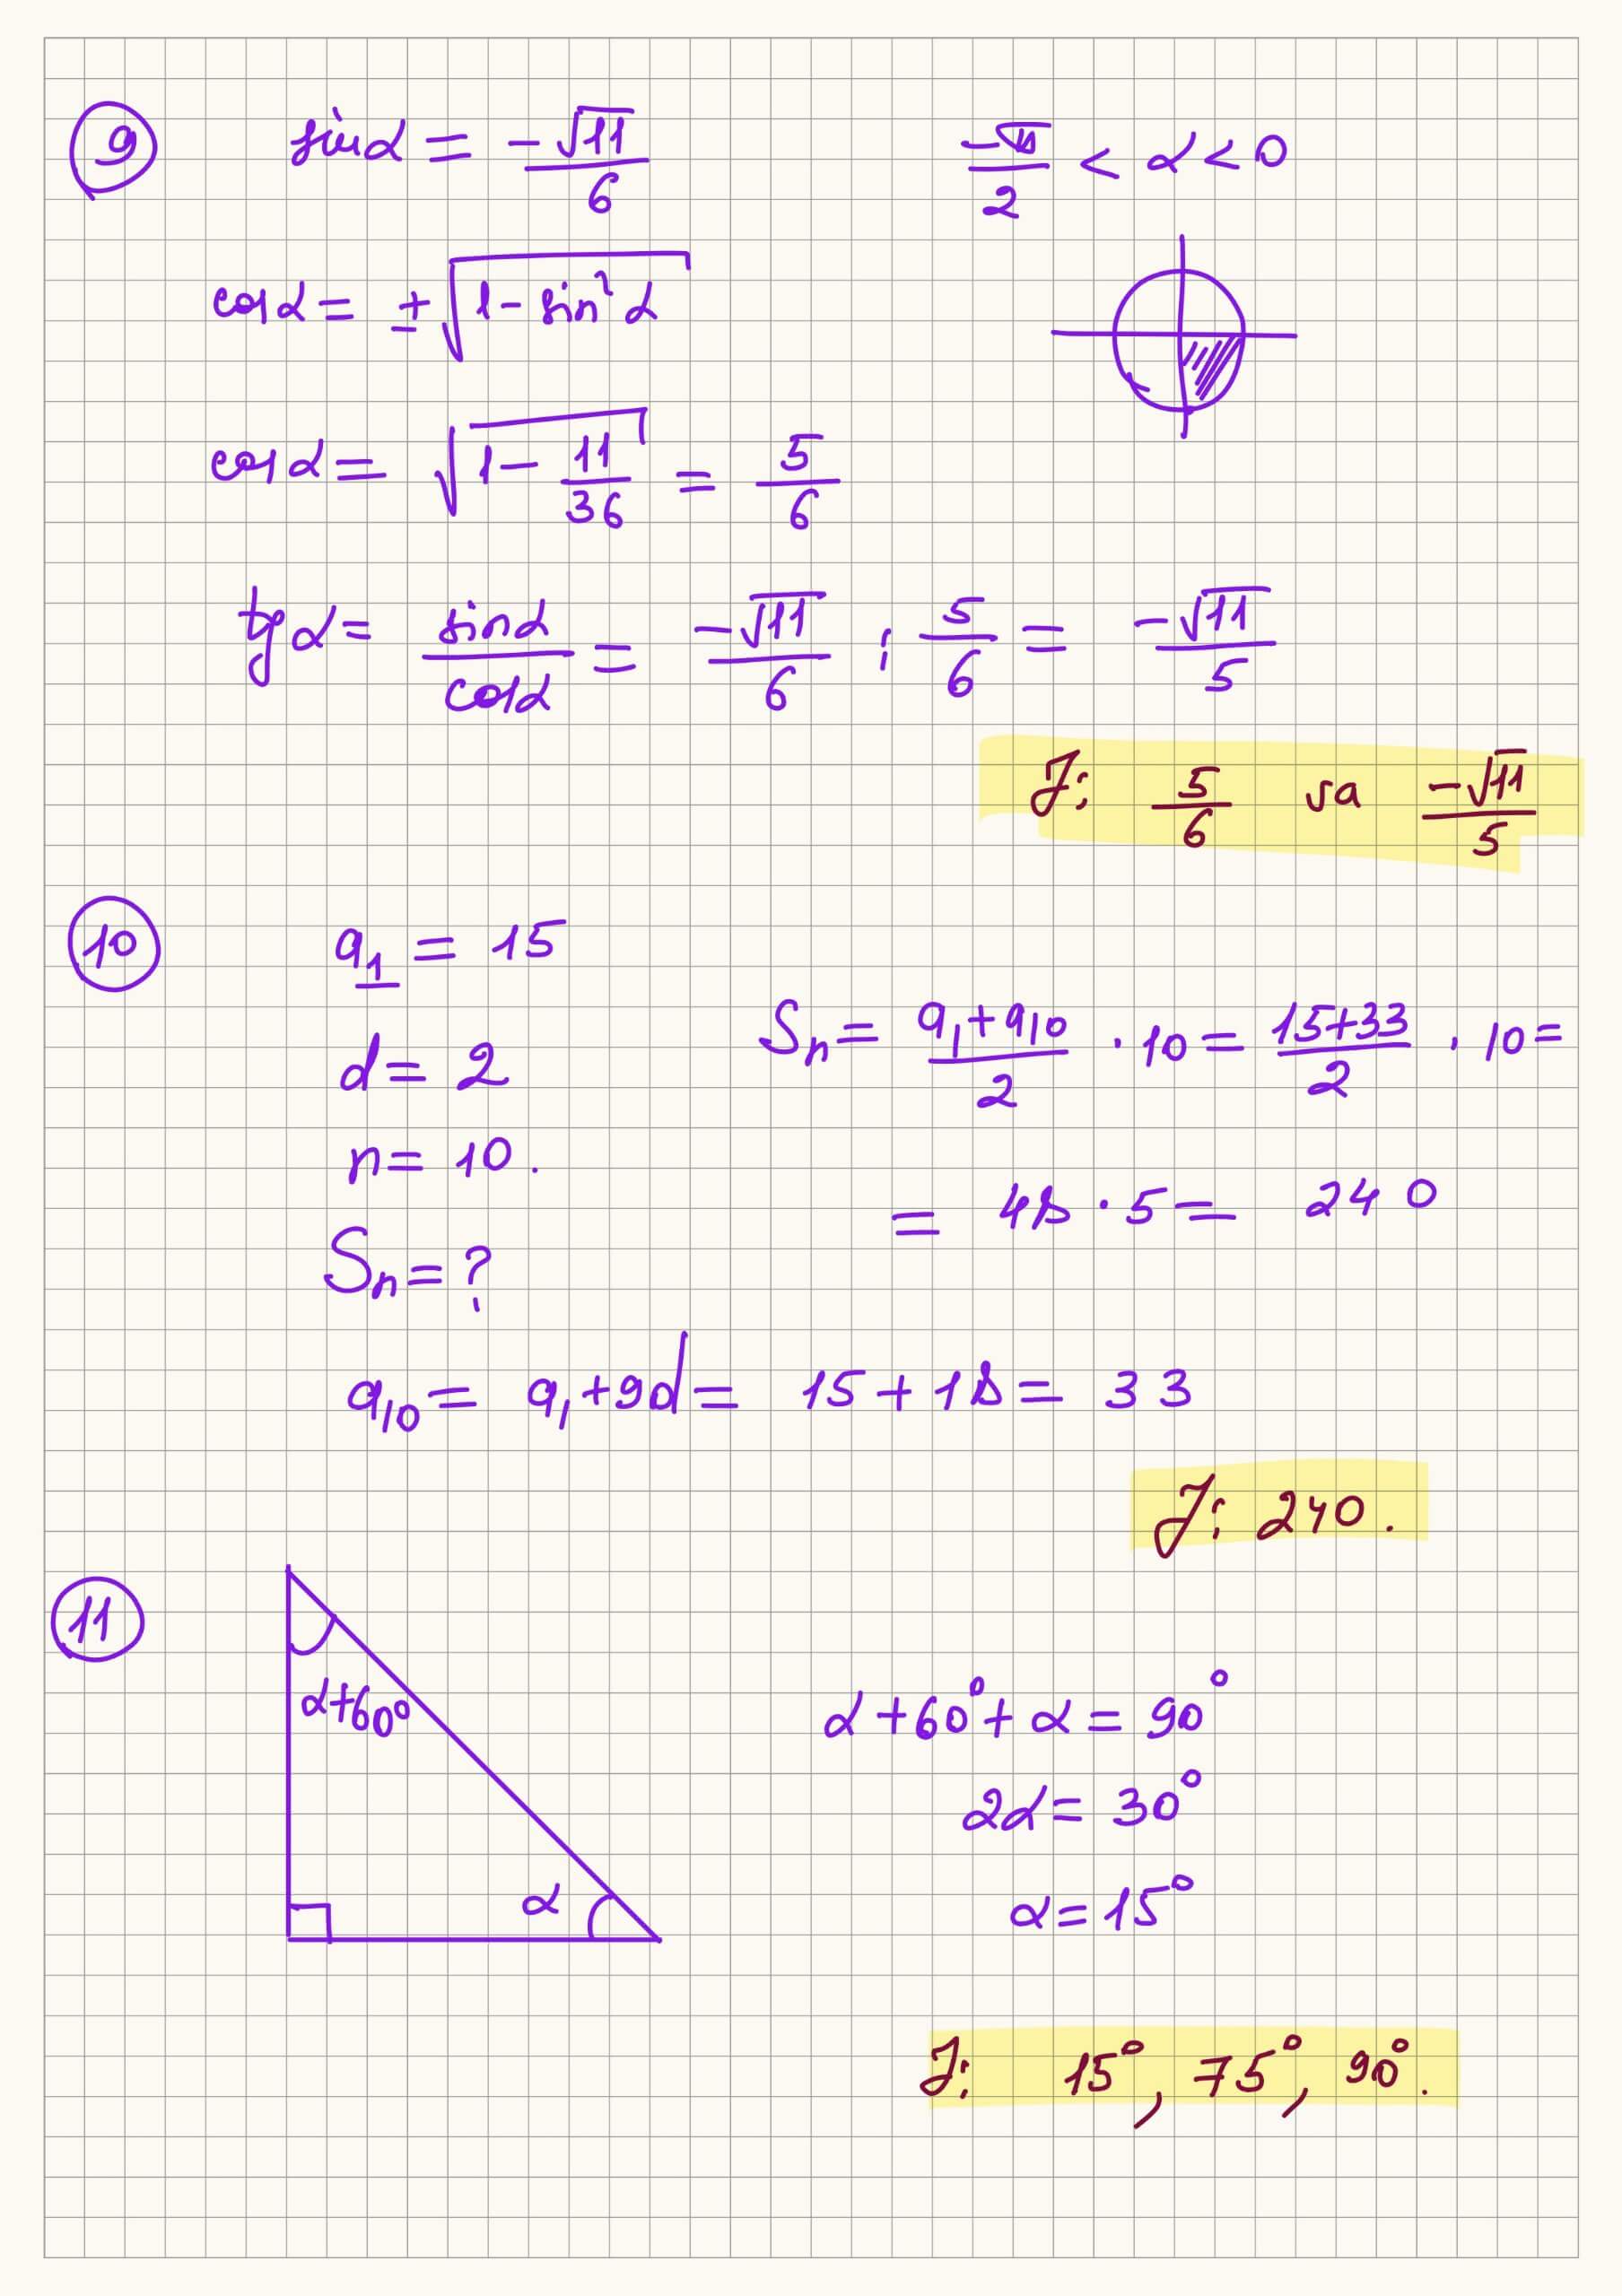 9 sinα = -√11/6 -π/2 < α < 0
cosα = ±√(1 - sin²α)
cosα = √(1 - 11/36) = 5/6
tgα = sinα/cosα = -√11/6 : 5/6 = -√11/5
J: 5/6 va -√11/5
10 a₁ = 15
d = 2 Sₙ = (a₁+a₁₀)/2 · 10 = (15+33)/2 · 10 =
n = 10.
= 48 · 5 = 240
Sₙ = ?
a₁₀ = a₁+9d = 15 + 18 = 33
J: 240.
11
α+60°
α+60°+α = 90°
2α = 30°
α
α = 15°
J: 15°, 75°, 90°.